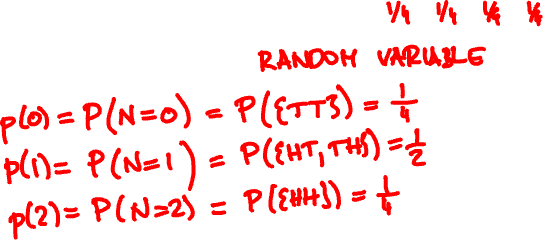 1/4 1/4 1/4 1/4
RANDOM VARIABLE
p(0) = P(N=0) = P({TT}) = 1/4
p(1) = P(N=1) = P({HT, TH}) = 1/2
p(2) = P(N=2) = P({HH}) = 1/4